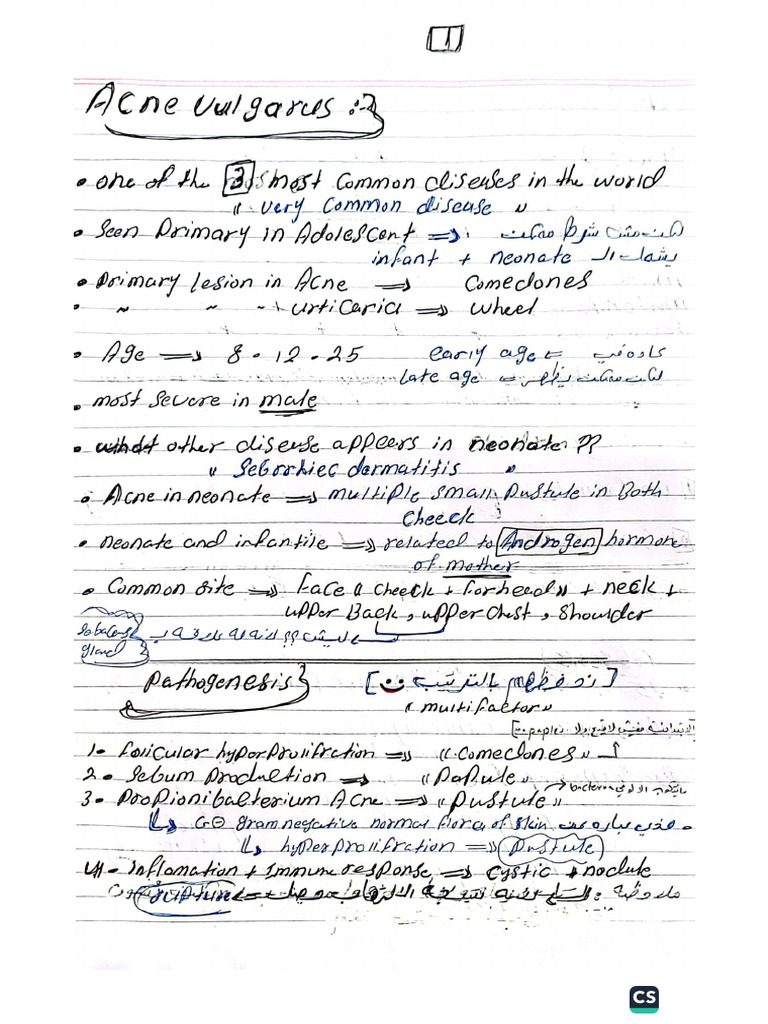 1
Acne vulgarus :-
• one of the 3 most common diseases in the world
" very common disease "
• Seen Primary in Adolescent ⇒ لكن مش شرط ممكن
يشمل ال infant + neonate
• Primary lesion in Acne ⇒ Comedones
• ~ ~ ~ urticaria ⇒ wheel
• Age ⇒ 8 - 12 - 25 early age ⇐ عادة في
late age ⇐ لكن ممكن يظهر
• most severe in male
• what other disease appears in neonate ??
" Seborrhiec dermatitis "
• Acne in neonate ⇒ multiple small Pustule in Both
cheeck
• neonate and infantile ⇒ related to Androgen hormone
of mother
• Common site ⇒ Face " cheeck + forhead " + neck +
upper Back, upper chest, Shoulder
Sebaceous gland
Pathogenesis [ نحفظهم بالترتيب ]
" multifactor "
1- Folicular hyperprolifration ⇒ " Comedones "
2- Sebum Production ⇒ " Papule "
3- Propionibacterium Acne ⇒ " Pustule " → bacteria
G⊖ gram negative normal flora of skin
hyperprolifration ⇒ Pustule
4- Inflamation + Immune response ⇒ cystic + nodule
ملاحظة :